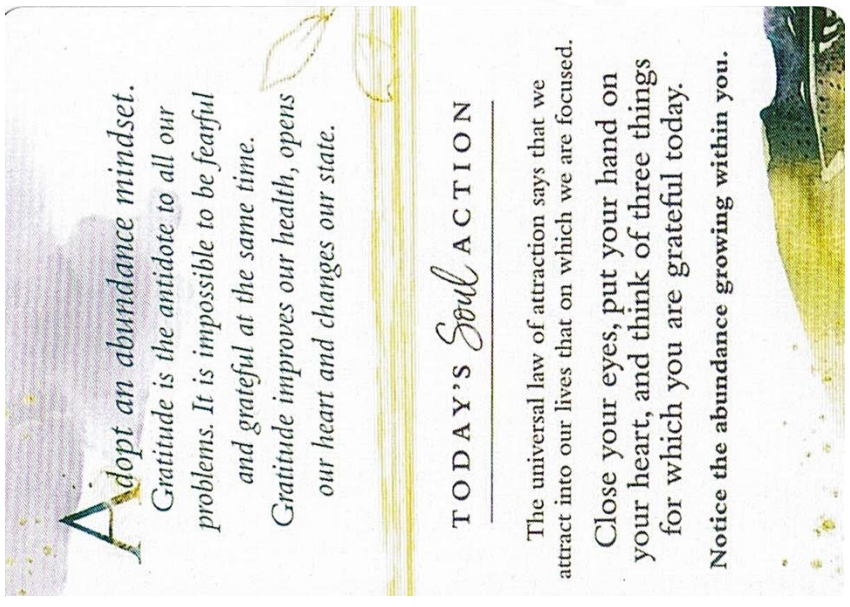 Adopt an abundance mindset.
Gratitude is the antidote to all our
problems. It is impossible to be fearful
and grateful at the same time.
Gratitude improves our health, opens
our heart and changes our state.
TODAY'S Soul ACTION
The universal law of attraction says that we
attract into our lives that on which we are focused.
Close your eyes, put your hand on
your heart, and think of three things
for which you are grateful today.
Notice the abundance growing within you.